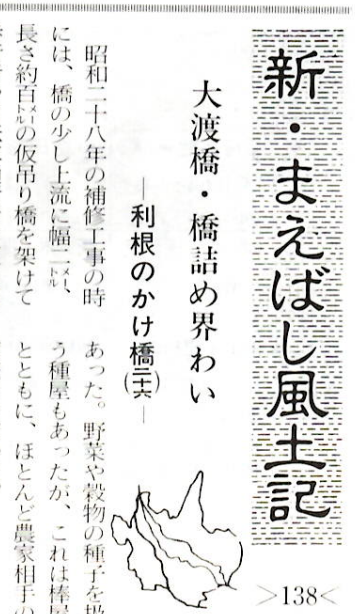 新・まえばし風土記
>138<
大渡橋・橋詰め界わい
―利根のかけ橋(二十六)―
昭和二十八年の補修工事の時
には、橋の少し上流に幅二メートル、
長さ約百メートルの仮吊り橋を架けて
あった。野菜や穀物の種子を扱
う種屋もあったが、これは棒屋
とともに、ほとんど農家相手の